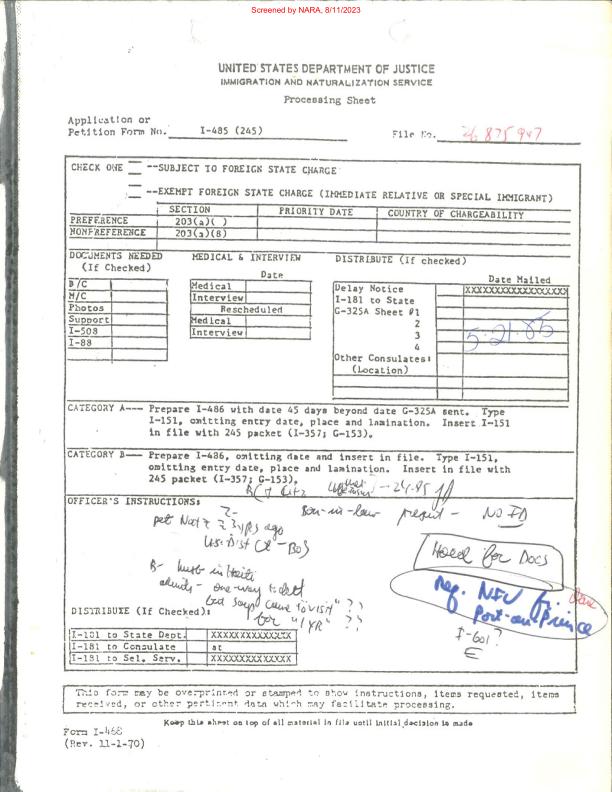 Screened by NARA, 8/11/2023
UNITED STATES DEPARTMENT OF JUSTICE
IMMIGRATION AND NATURALIZATION SERVICE
Processing Sheet
Application or
Petition Form No. I-485 (245) File No.
CHECK ONE --SUBJECT TO FOREIGN STATE CHARGE
--EXEMPT FOREIGN STATE CHARGE (IMMEDIATE RELATIVE OR SPECIAL IMMIGRANT)
SECTION PRIORITY DATE COUNTRY OF CHARGEABILITY
PREFERENCE 203(a)( )
NONPREFERENCE 203(a)(8)
DOCUMENTS NEEDED MEDICAL & INTERVIEW DISTRIBUTE (If checked)
(If Checked) Date Date Mailed
B/C Medical Delay Notice XXXXXXXXXXXXXXXXX
M/C Interview I-181 to State
Photos Rescheduled G-325A Sheet #1
Support Medical 2
I-508 Interview 3 5-21-85
I-88 4
Other Consulates:
(Location)
CATEGORY A--- Prepare I-486 with date 45 days beyond date G-325A sent. Type
I-151, omitting entry date, place and lamination. Insert I-151
in file with 245 packet (I-357; G-153).
CATEGORY B--- Prepare I-486, omitting date and insert in file. Type I-151,
omitting entry date, place and lamination. Insert in file with
245 packet (I-357; G-153).
OFFICER'S INSTRUCTIONS:
Son-in-law present - NO ID
pet Natz 2 3 yrs ago
US Dist Ct - BOS
Hold for Docs
B- husb in Haiti
admits - one-way ticket
but says came to visit" ??
for "1 YR" ??
Req. NIV f
Port-au-Prince
I-601?
E
DISTRIBUTE (If Checked):
I-181 to State Dept. XXXXXXXXXXXXXX
I-181 to Consulate at
I-181 to Sel. Serv. XXXXXXXXXXXXXX
This form may be overprinted or stamped to show instructions, items requested, items
received, or other pertinent data which may facilitate processing.
Keep this sheet on top of all material in file until initial decision is made
Form I-468
(Rev. 11-1-70)